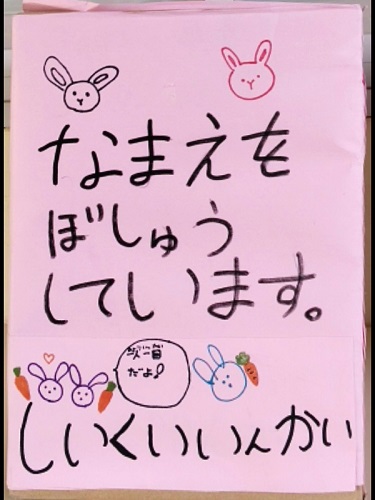 なまえを
ぼしゅう
しています。
だよ!
しいくいいんかい